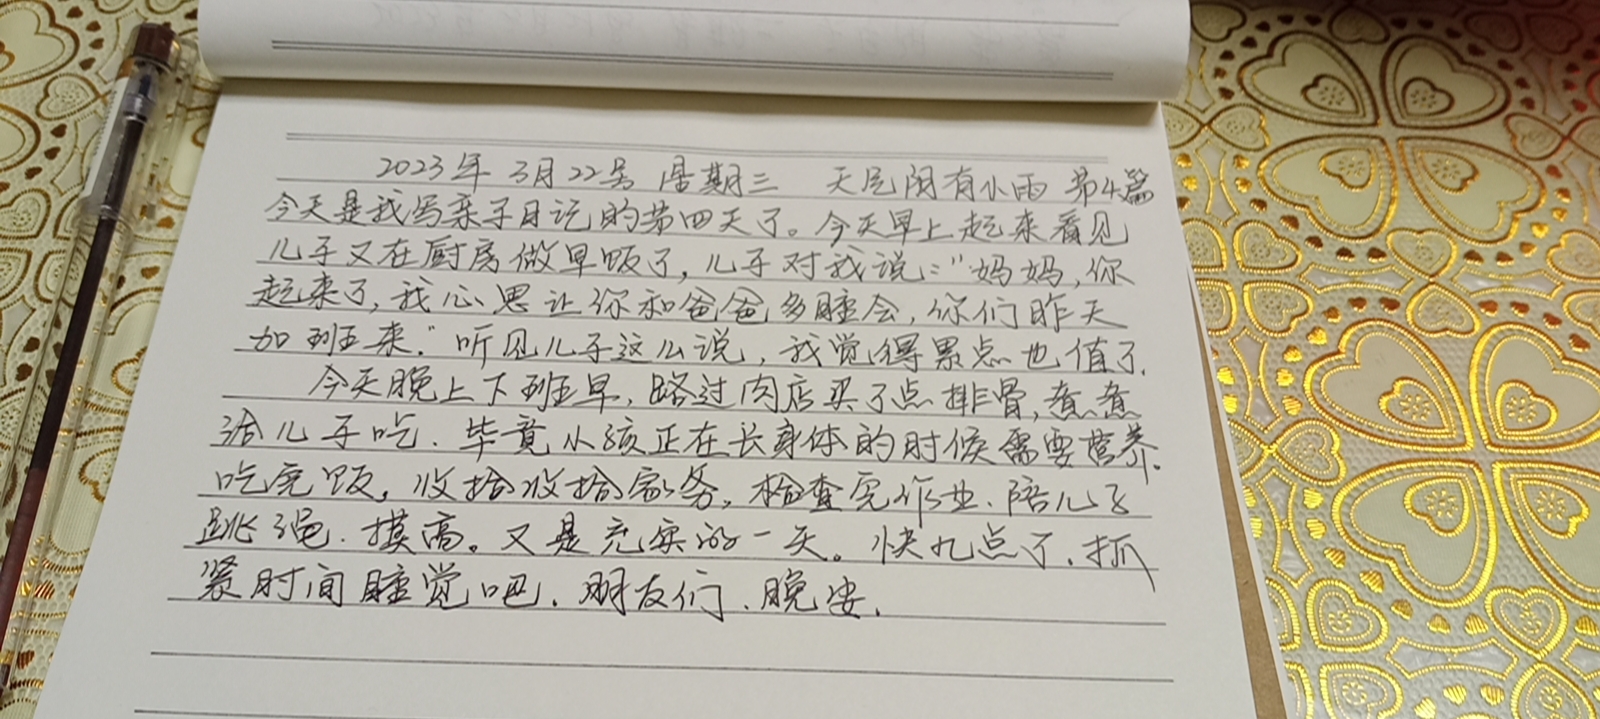 2023年 3月22号 星期三 天气阴有小雨 第4篇
今天是我写亲子日记的第四天了。今天早上起来看见
儿子又在厨房做早饭了,儿子对我说:"妈妈,你
起来了,我心思让你和爸爸多睡会,你们昨天
加班来."听见儿子这么说,我觉得累点也值了.
今天晚上下班早,路过肉店买了点排骨,煮煮
给儿子吃.毕竟小孩正在长身体的时候需要营养.
吃完饭,收拾收拾家务,检查完作业.陪儿子
跳绳.摸高。又是充实的一天。快九点了.抓
紧时间睡觉吧.朋友们.晚安.